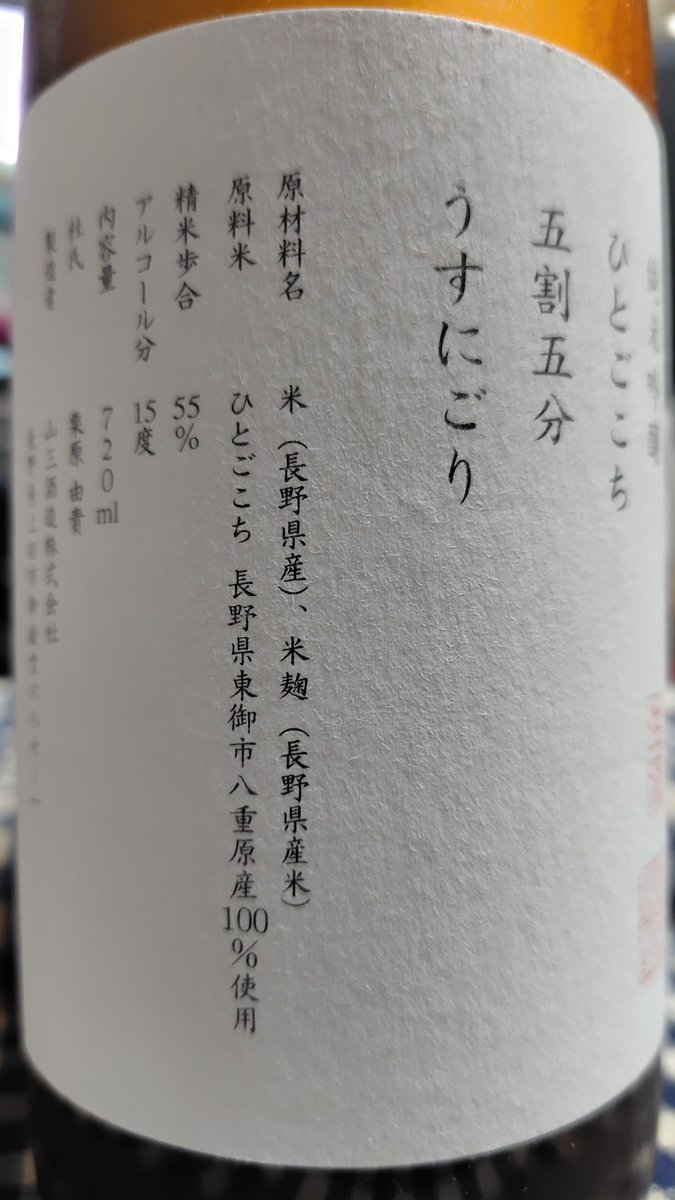 純米吟醸
ひとごこち
五割五分
うすにごり
原材料名 米（長野県産）、米麹（長野県産米）
原料米 ひとごこち 長野県東御市八重原産100%使用
精米歩合 55%
アルコール分 15度
内容量 720ml
杜氏 栗原由貴
製造者 山三酒造株式会社
長野県上田市御嶽堂六八七-一